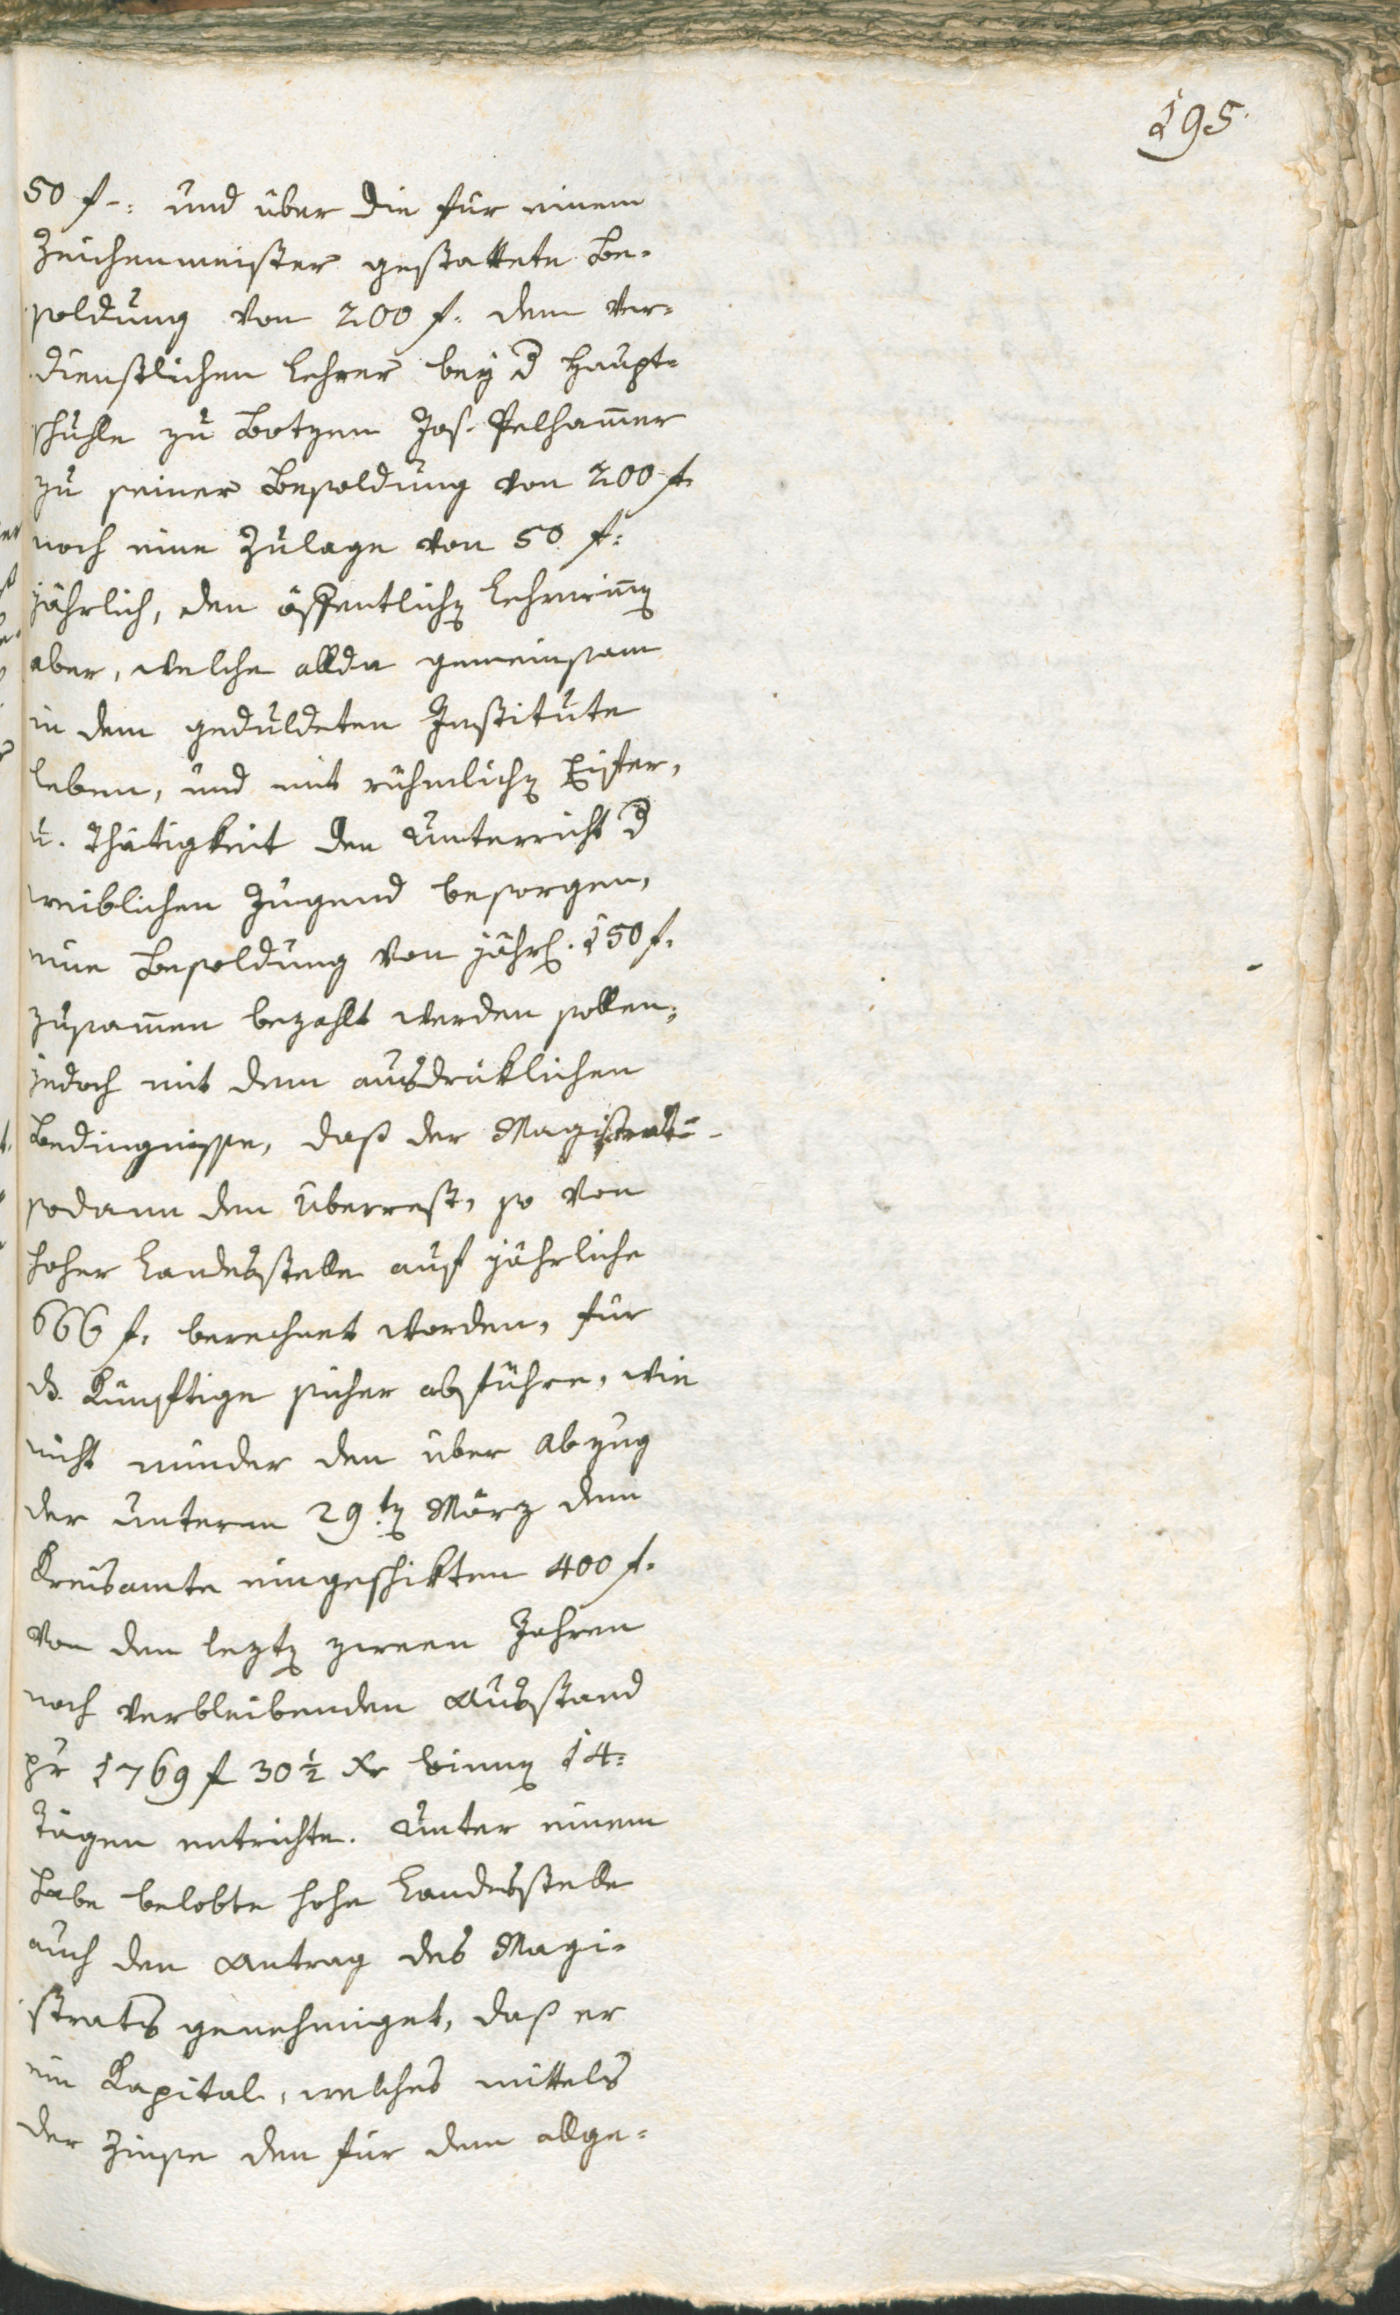 195.
50 f-: und über die für einem
Zeichenmeister gestattete Be-
soldung von 200 f. dem ver-
dienstlichen Lehrer bey d Haupt-
schuhle zu Botzen Jos. Pelham̄er
zu seiner Besoldung von 200 f.
noch eine Zulage von 50 f:
jährlich, den öffentlichen Lehrerin̄en
aber, welche allda gemeinsam
in dem geduldeten Institute
leben, und mit rühmlichen Eifer,
u. Thätigkeit den Unterricht d
weiblichen Jugend besorgen,
eine Besoldung von jährl. 150 f.
zusam̄en bezahlt werden sollen;
jedoch mit dem ausdrüklichen
Bedingnisse, daß der Magistrat
sodann den Überrest, so von
hoher Landesstelle auf jährliche
666 f. berechnet worden, für
ds. Künftige sicher abführe, wie
nicht minder den über Abzug
der unterm 29.ten März dem
Kreisamte eingeschikten 400 f.
von den lezten zween Jahren
noch verbleibenden Ausstand
pr 1769 f 30 ½ Xr binnen 14=
Tägen entrichte. Unter einem
habe belobte hohe Landesstelle
auch den Antrag des Magi-
strats genehmiget, daß er
ein Kapital, welches mittels
der Zinse den für dem allge=